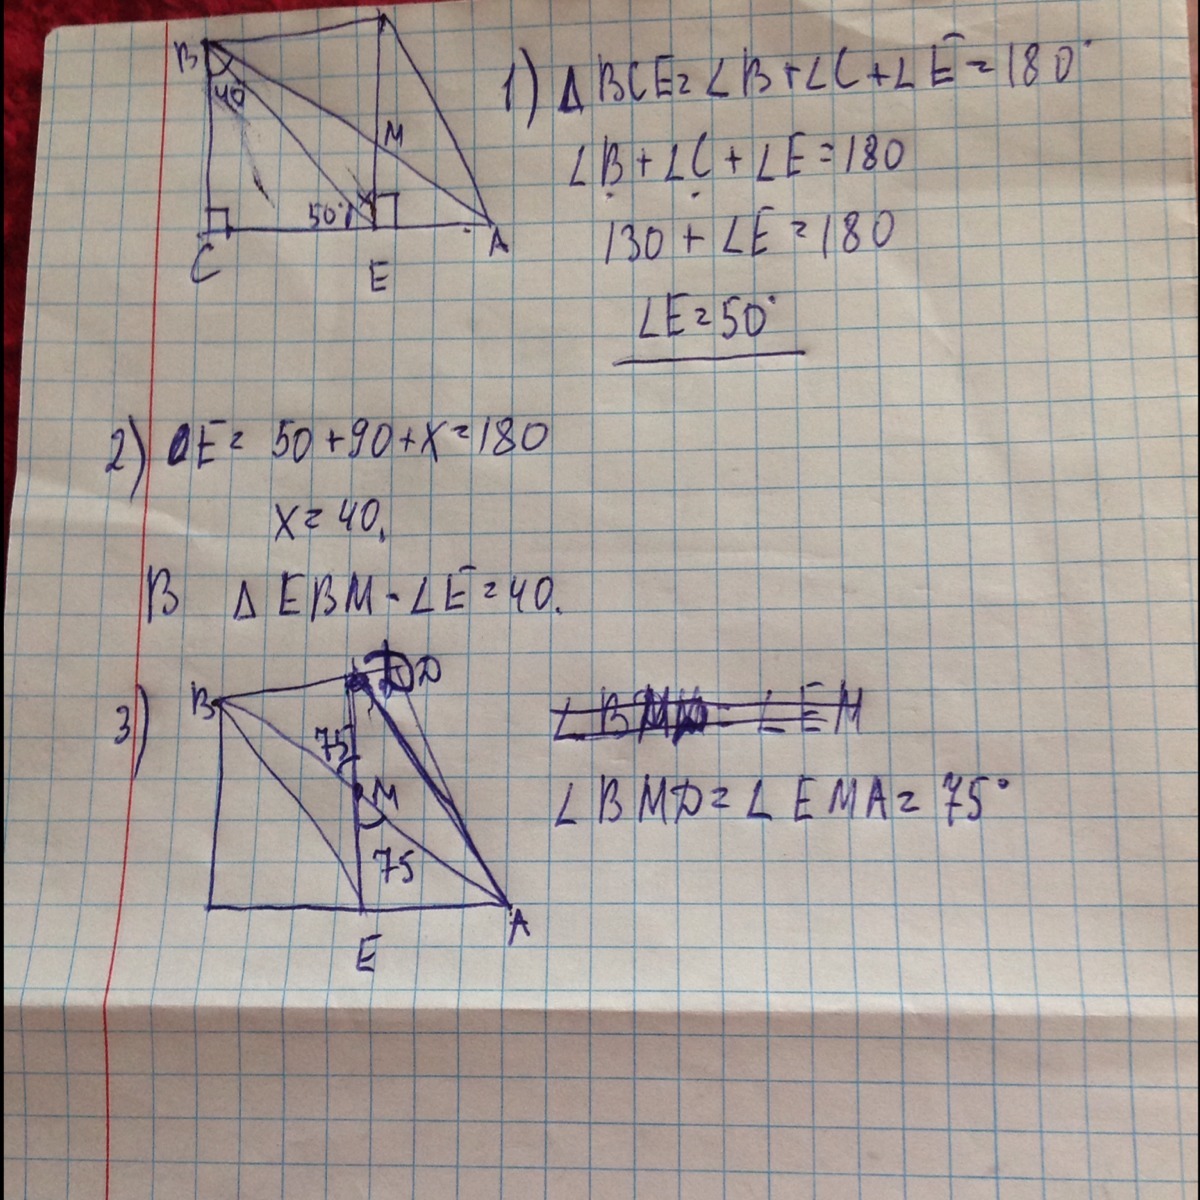 B
40
M
50°
x
C
E
A
1) Δ BCE = ∠B + ∠C + ∠E = 180°
∠B + ∠C + ∠E = 180
130 + ∠E = 180
∠E = 50°
2) E = 50 + 90 + x = 180
x = 40.
В Δ EBM - ∠E = 40.
3)
B
D
75
M
75
E
A
∠ BMD = ∠ EMA = 75°